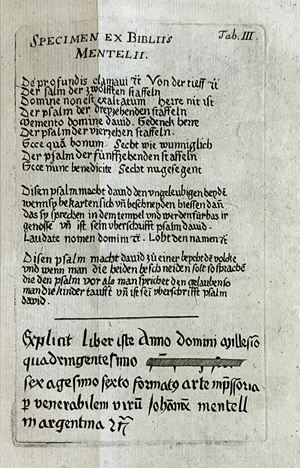 Tab. III.
SPECIMEN EX BIBLIIS
MENTELII.
De profundis clamavi ꝛc̃ Von der tieff ꝛc̃
Der psalm der zwölfften staffeln
Domine non est exaltatum herre nit ist
Der psalm der dreyzehenden staffeln
Memento domine david. Gedenck herre
Der psalm der vierzehen staffeln.
Ecce quã bonum. Secht wie wunniglich
Der psalm der fünffzehenden staffeln
Ecce nunc benedicite Secht nu gesegent
Disen psalm macht david den ungeleubigen
wenn sy bekarten sich vñ beschneyden hiessen
das sy sprechen in dem tempel vnd werden fürbas ir
genosse vñ ist sein vberschrifft psalm david.
Laudate nomen domini ꝛc̃. Lobt den namen ꝛc̃
Disen psalm macht david zu einer
und wenn man die heiden beschneiden solt so sprachẽ
die den psalm vor als man sprichet den gelauben so
man die kinder taufft vñ ist sei vberschrifft psalm
david.
Explicit liber iste Anno domini millesĩo
quadringentesimo
sexagesimo sexto formatꝰ arte impssoria
ꝑ venerabilem virũ Johãnẽ mentell
in argentina ꝛc̃